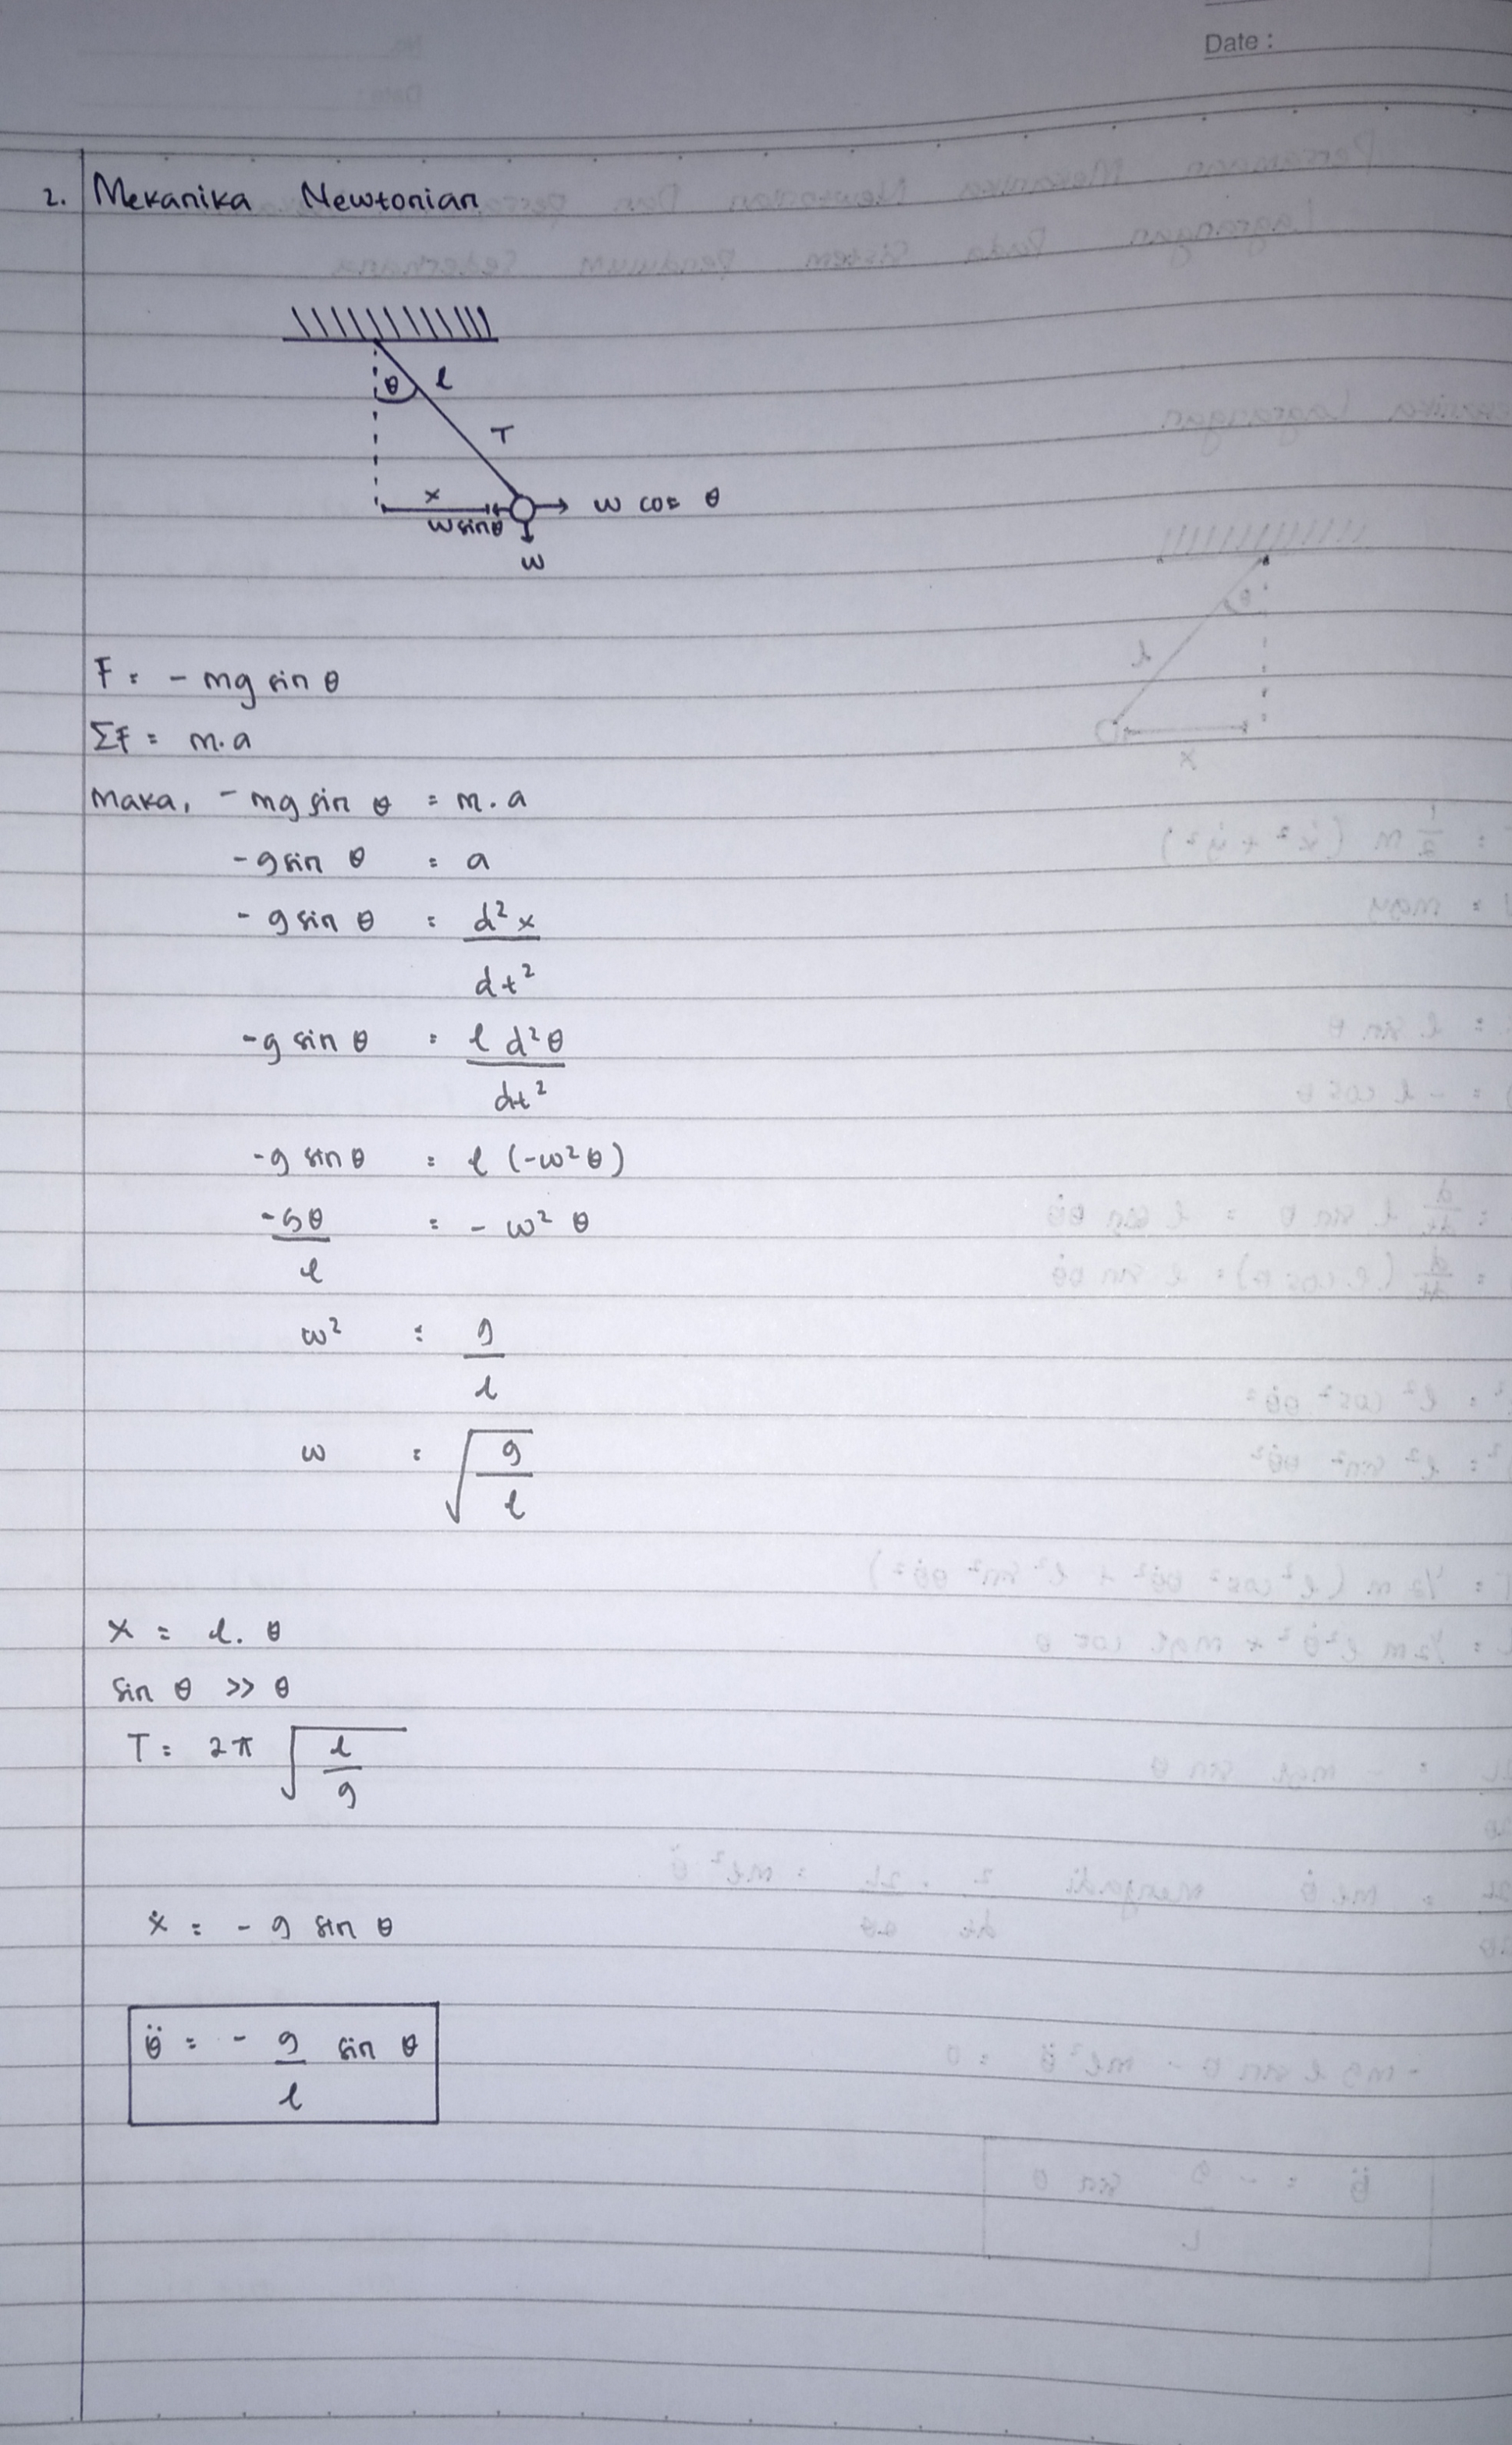 Date :
2. Mekanika Newtonian
θ l
T
x
w sinθ w cos θ
w
F = - mg sin θ
ΣF = m.a
Maka, - mg sin θ = m.a
- g sin θ = a
- g sin θ = d²x / dt²
- g sin θ = l d²θ / dt²
- g sin θ = l (-ω²θ)
- gθ / l = - ω² θ
ω² = g / l
ω = √(g / l)
x = l. θ
sin θ >> θ
T = 2π √(l / g)
ẋ = - g sin θ
θ̈ = - g / l sin θ